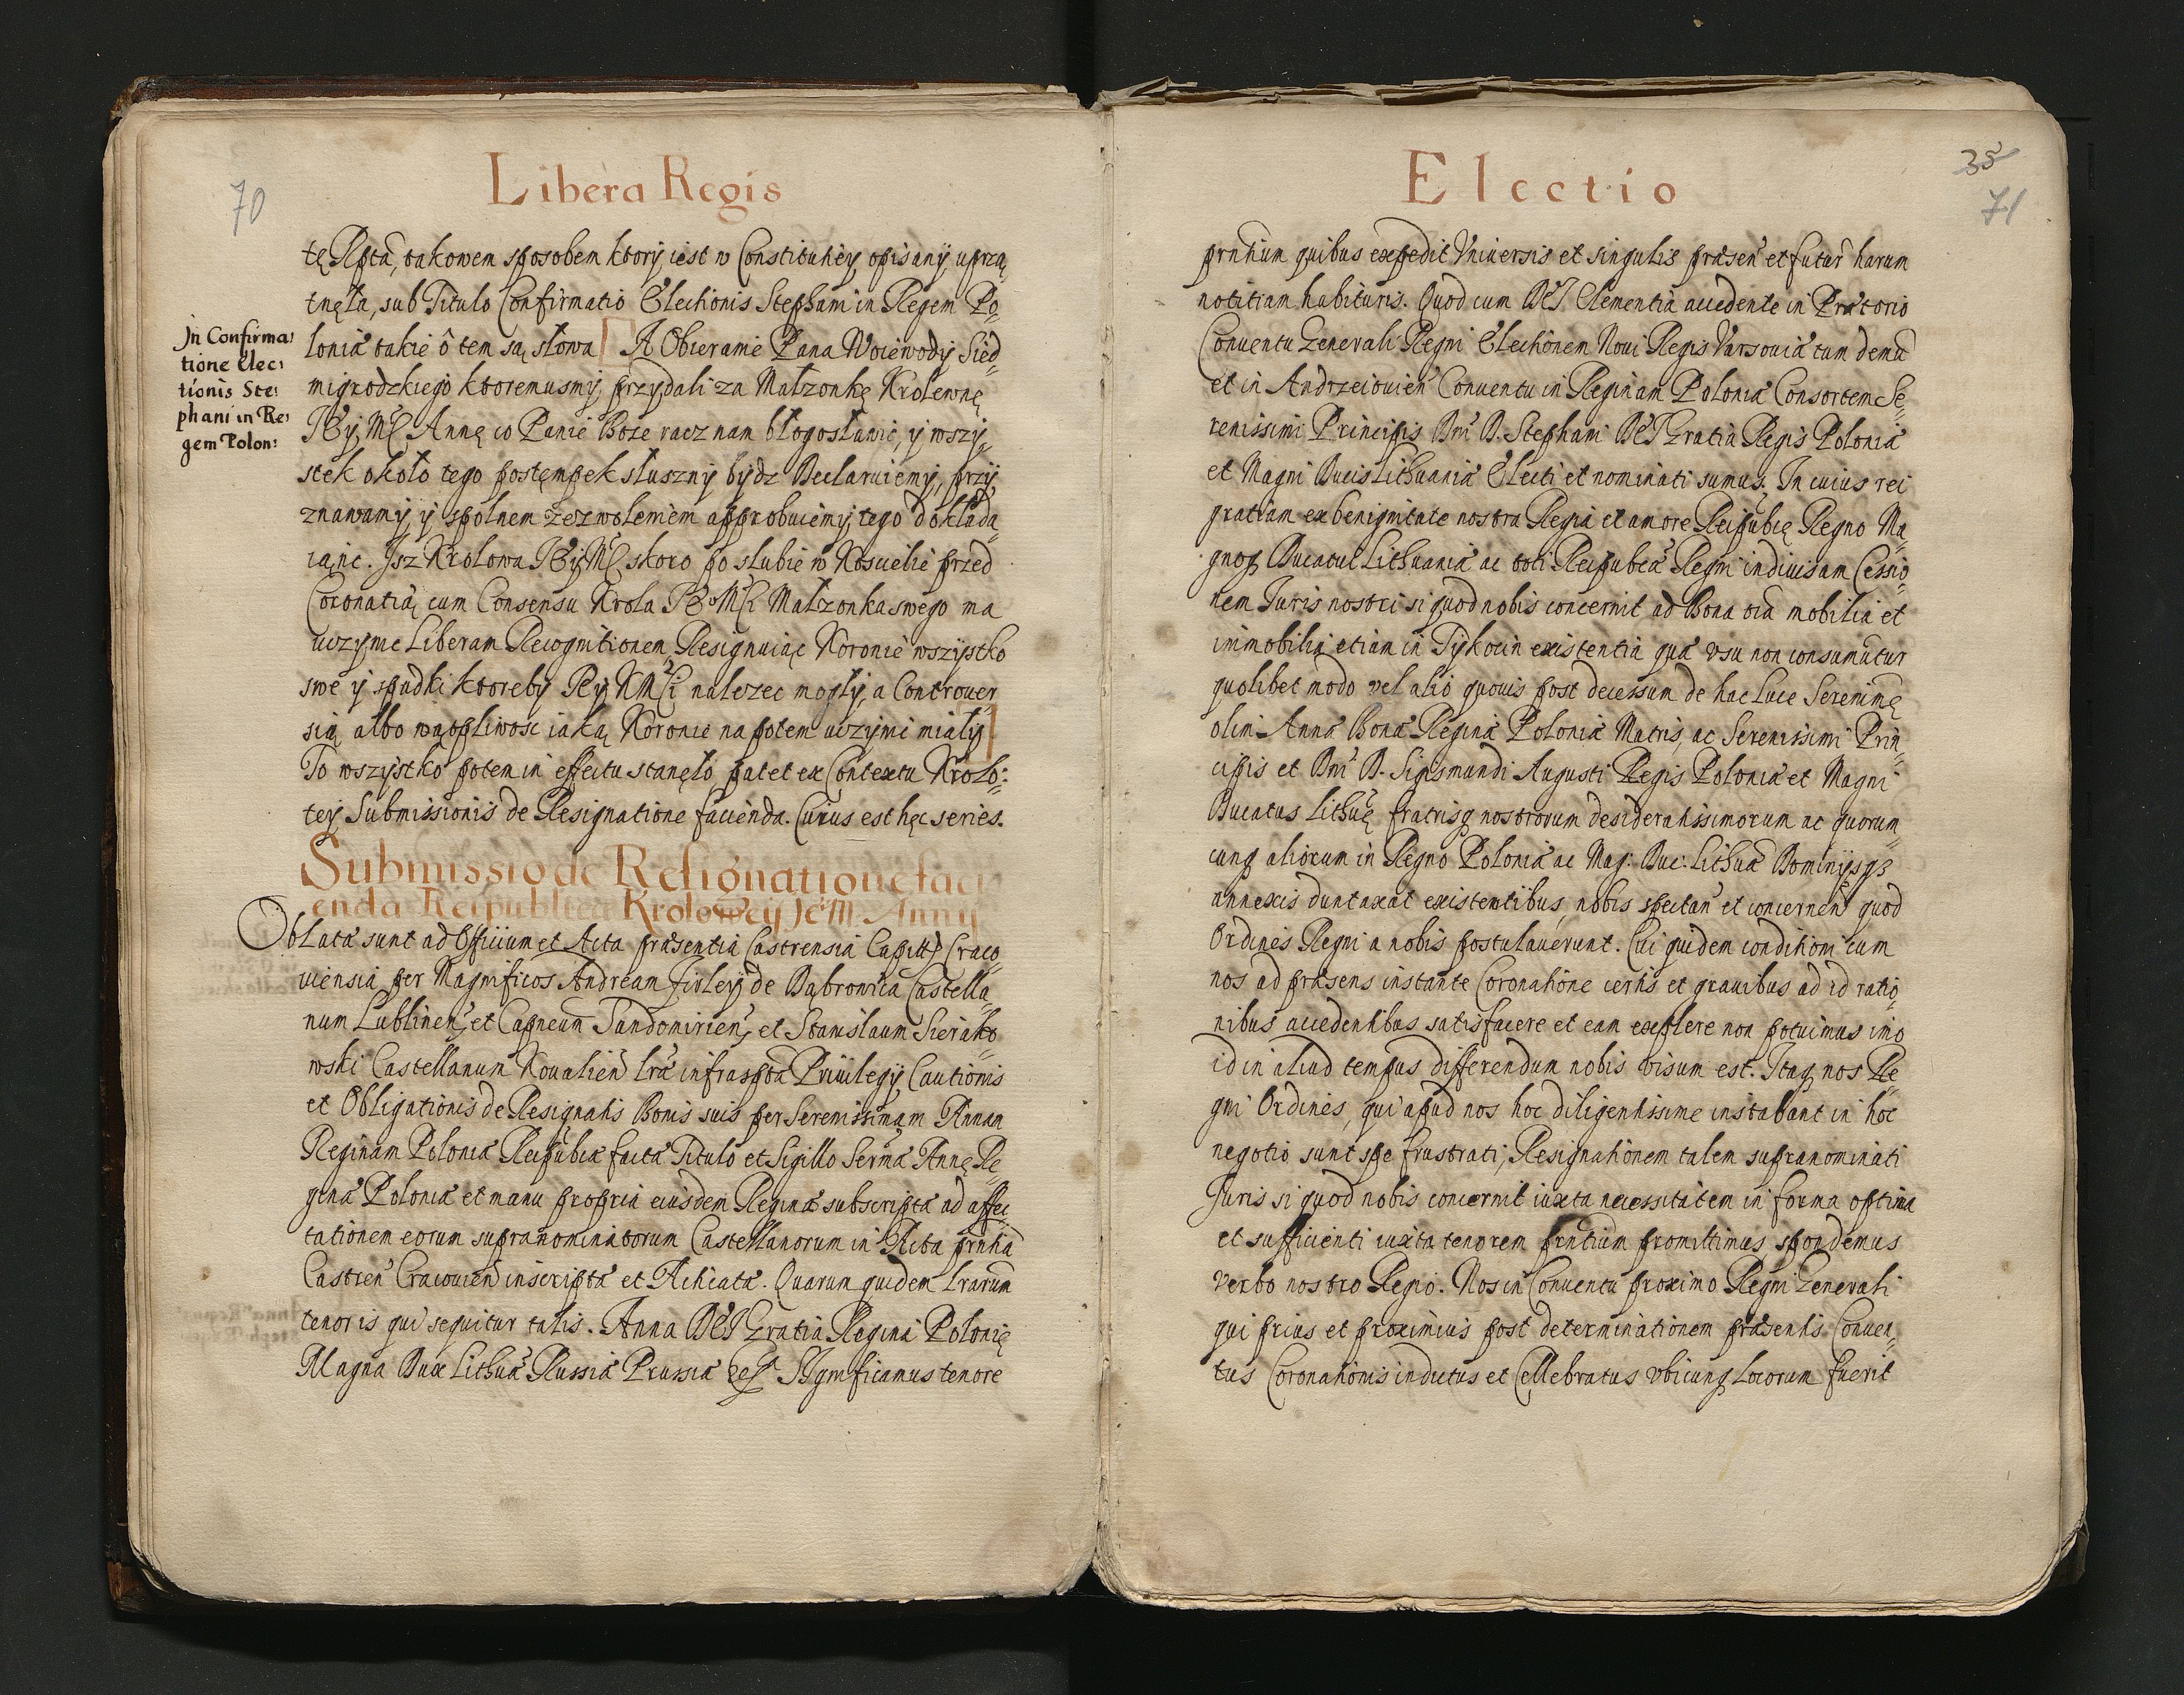 70
Libera Regis
In Confirma:
tione Elec:
tionis Ste:
phani in Re:
gem Polon:
tę Rptã, takowem sposobem ktory iest w Constitutiey opisany, uprzą
tnęła, sub Titulo Confirmatio Electionis Stephani in Regem Po„
loniæ takie ô tem są słowa [ A Obieramie Pana Woiewody Sied„
migrodzkiego ktoremusmy przydali za Małzonkę Krolewnę
JEy Mć Annę co Panie Boze racz nam błogosławic, y wszy„
stek około tego postempek słuszny bydz Declaruiemy, przy
znawamy, y spolnem zezwoleniem approbuiemy, tego dokłada„
iąnc. Jsz Krolowa JEy Mć skoro po slubie w Koscielie przed
Coronatią cum Consensu Krola JEo Mći Małzonka swego ma
uczynic Liberam Recognitionem Resignuiąc Koronie wszystko
swe y spadki ktoreby Ry KMći nalezec mogły, a Controuer„
sią albo wątpliwosc iaką Koronie na potem uczynic miały ]
To wszystko potem in effectu stanęło patet ex Contextu Krolo:
tey Submissionis de Resignatione facienda. Cuius est hęc series.
Submissio de Resignatione faci
enda Reipublicæ Krolowey JeM: Anny
Oblatæ sunt ad Officium et Acta præsentia Castrensia Capitt Craco„
uiensia per Magnificos Andream Firley de Dąbrowica Castella„
num Lublinen, et Capneum Sandomirien, et Stanislaum Sierako„
wski Castellanum Koualien lræ infrascptæ Priuilegij Cautionis
et Obligationis de Resignatis Bonis suis per Serenissimam Annam
Reginam Poloniæ Reipublicæ factæ Titulo et Sigillo Sermæ Annę Re„
ginæ Poloniæ et manu propria eiusdem Reginæ subscripta ad affec„
tationem eorum supranominatorum Castellanorum in Acta prntia
Castren Cracouien inscriptæ et Acticatæ. Quarum quidem lrarum
tenoris qui sequitur talis. Anna DEI Gratia Regina Polonię
Magna Dux Lithuæ Russiæ Prussiæ Significamus tenore
Electio
35
71
prntium quibus expedit Vniuersis et singulis præsen et futur harum
notitiam habituris. Quod cum DEI Clementia accedente in Prætorio
Conuentu Generali Regni Electionem Noui Regis Varsouiæ tum demũ
et in Andrzeiouien Conuentu in Reginam Poloniæ Consortem Se„
renissimi Principis Dni D. Stephani DEI Gratia Regis Poloniæ
et Magni Ducis Lithuaniæ Electi et nominati sumus. In cuius rei
gratiam ex benignitate nostra Regia et amore Reipublicę Regno Ma„
gnoq Ducatui Lithuaniæ ac toti Reipublicæ Regni indiuisam Cessio„
nem Iuris nostri si quod nobis concernit ad Bona oia mobilia et
immobilia etiam in Tykocin existentia quæ vsu non consumũtur
quolibet modo vel alio quouis post decessum de hac Luce Serenimę
olim Annæ Bonæ Reginæ Poloniæ Matris, ac Serenissimi Prin„
cipis et Dni D. Sigismundi Augusti Regis Poloniæ et Magni
Ducatus Lithuę fratrisq nostrorum desideratissimorum ac quorum„
cunq aliorum in Regno Poloniæ ac Mag: Duc: Lithuæ Dominijsq3
annexis duntaxat existentibus, nobis spectan et concernen quod
Ordines Regni a nobis postulauerunt. Cui quidem conditioni cum
nos ad præsens instante Coronatione certis et grauibus ad id ratio„
nibus accedentibus satisfacere et eam explere non potuimus imo
id in aliud tempus differendum nobis visum est. Itaq nos Re„
gni Ordines, qui apud nos hoc diligentissime instabant in hoc
negotio sunt spe frustrati, Resignationem talem supranominati
Iuris si quod nobis concernit iuxta necessitatem in forma optima
et sufficienti iuxta tenorem prntium promittimus spondemus
verbo nostro Regio. Nos in Conuentu proximo Regni Generali
qui prius et proximius post determinationem præsentis Conuen„
tus Coronationis indictus et Cellebratus vbicunq Locorum fuerit